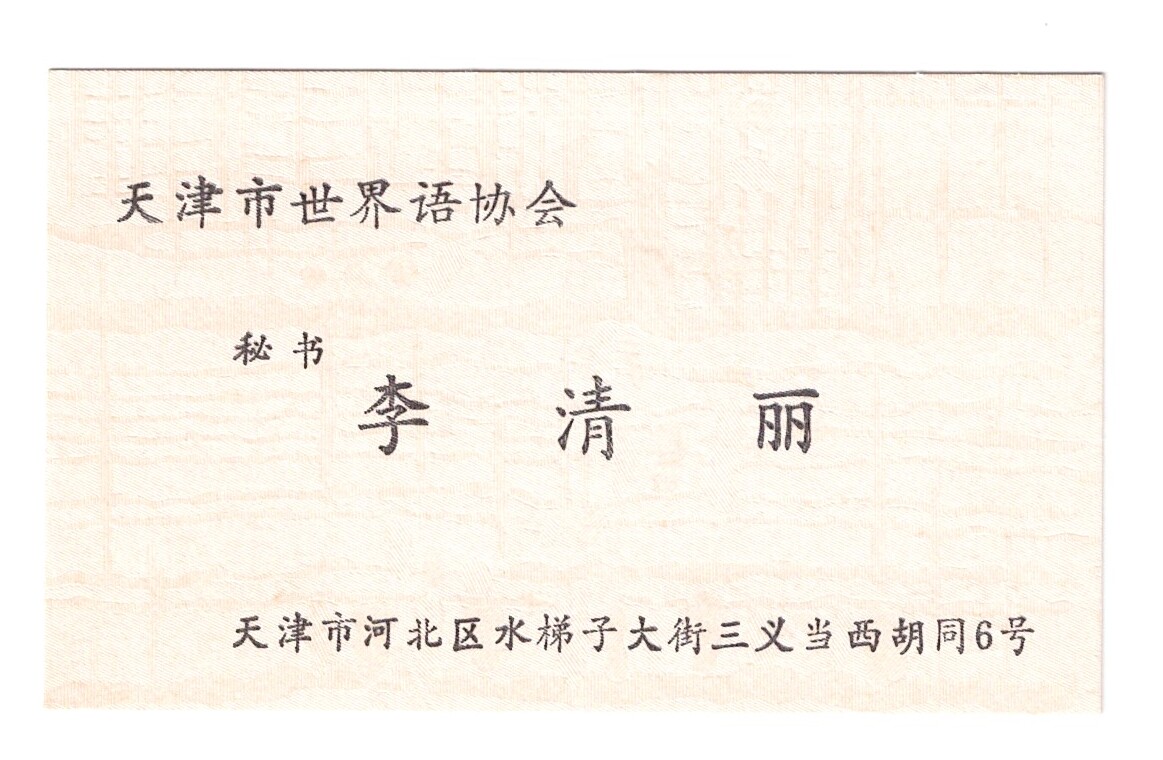 天津市世界语协会
秘书
李清丽
天津市河北区水梯子大街三义当西胡同6号